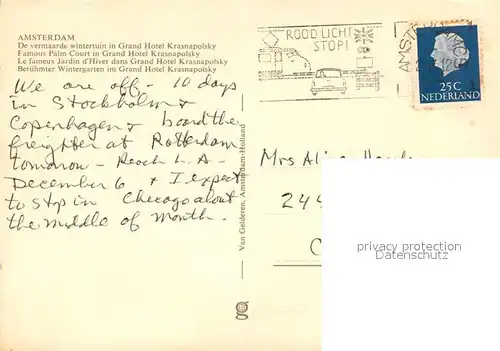 AMSTERDAM
De vermaarde wintertuin in Grand Hotel Krasnapolsky
Famous Palm Court in Grand Hotel Krasnapolsky
Le fameux Jardin d'Hiver dans Grand Hotel Krasnapolsky
Berühmter Wintergarten im Grand Hotel Krasnapolsky
We are off - 10 days
in Stockholm &
Copenhagen & board the
freighter at Rotterdam
tomorrow - Reach L.A.
December 6 & I expect
to stop in Chicago about
the middle of month.
Van Gelderen, Amsterdam-Holland
ROOD LICHT
STOP!
AMSTERDAM
25 C
NEDERLAND
Mrs
244
C
privacy protection
Datenschutz